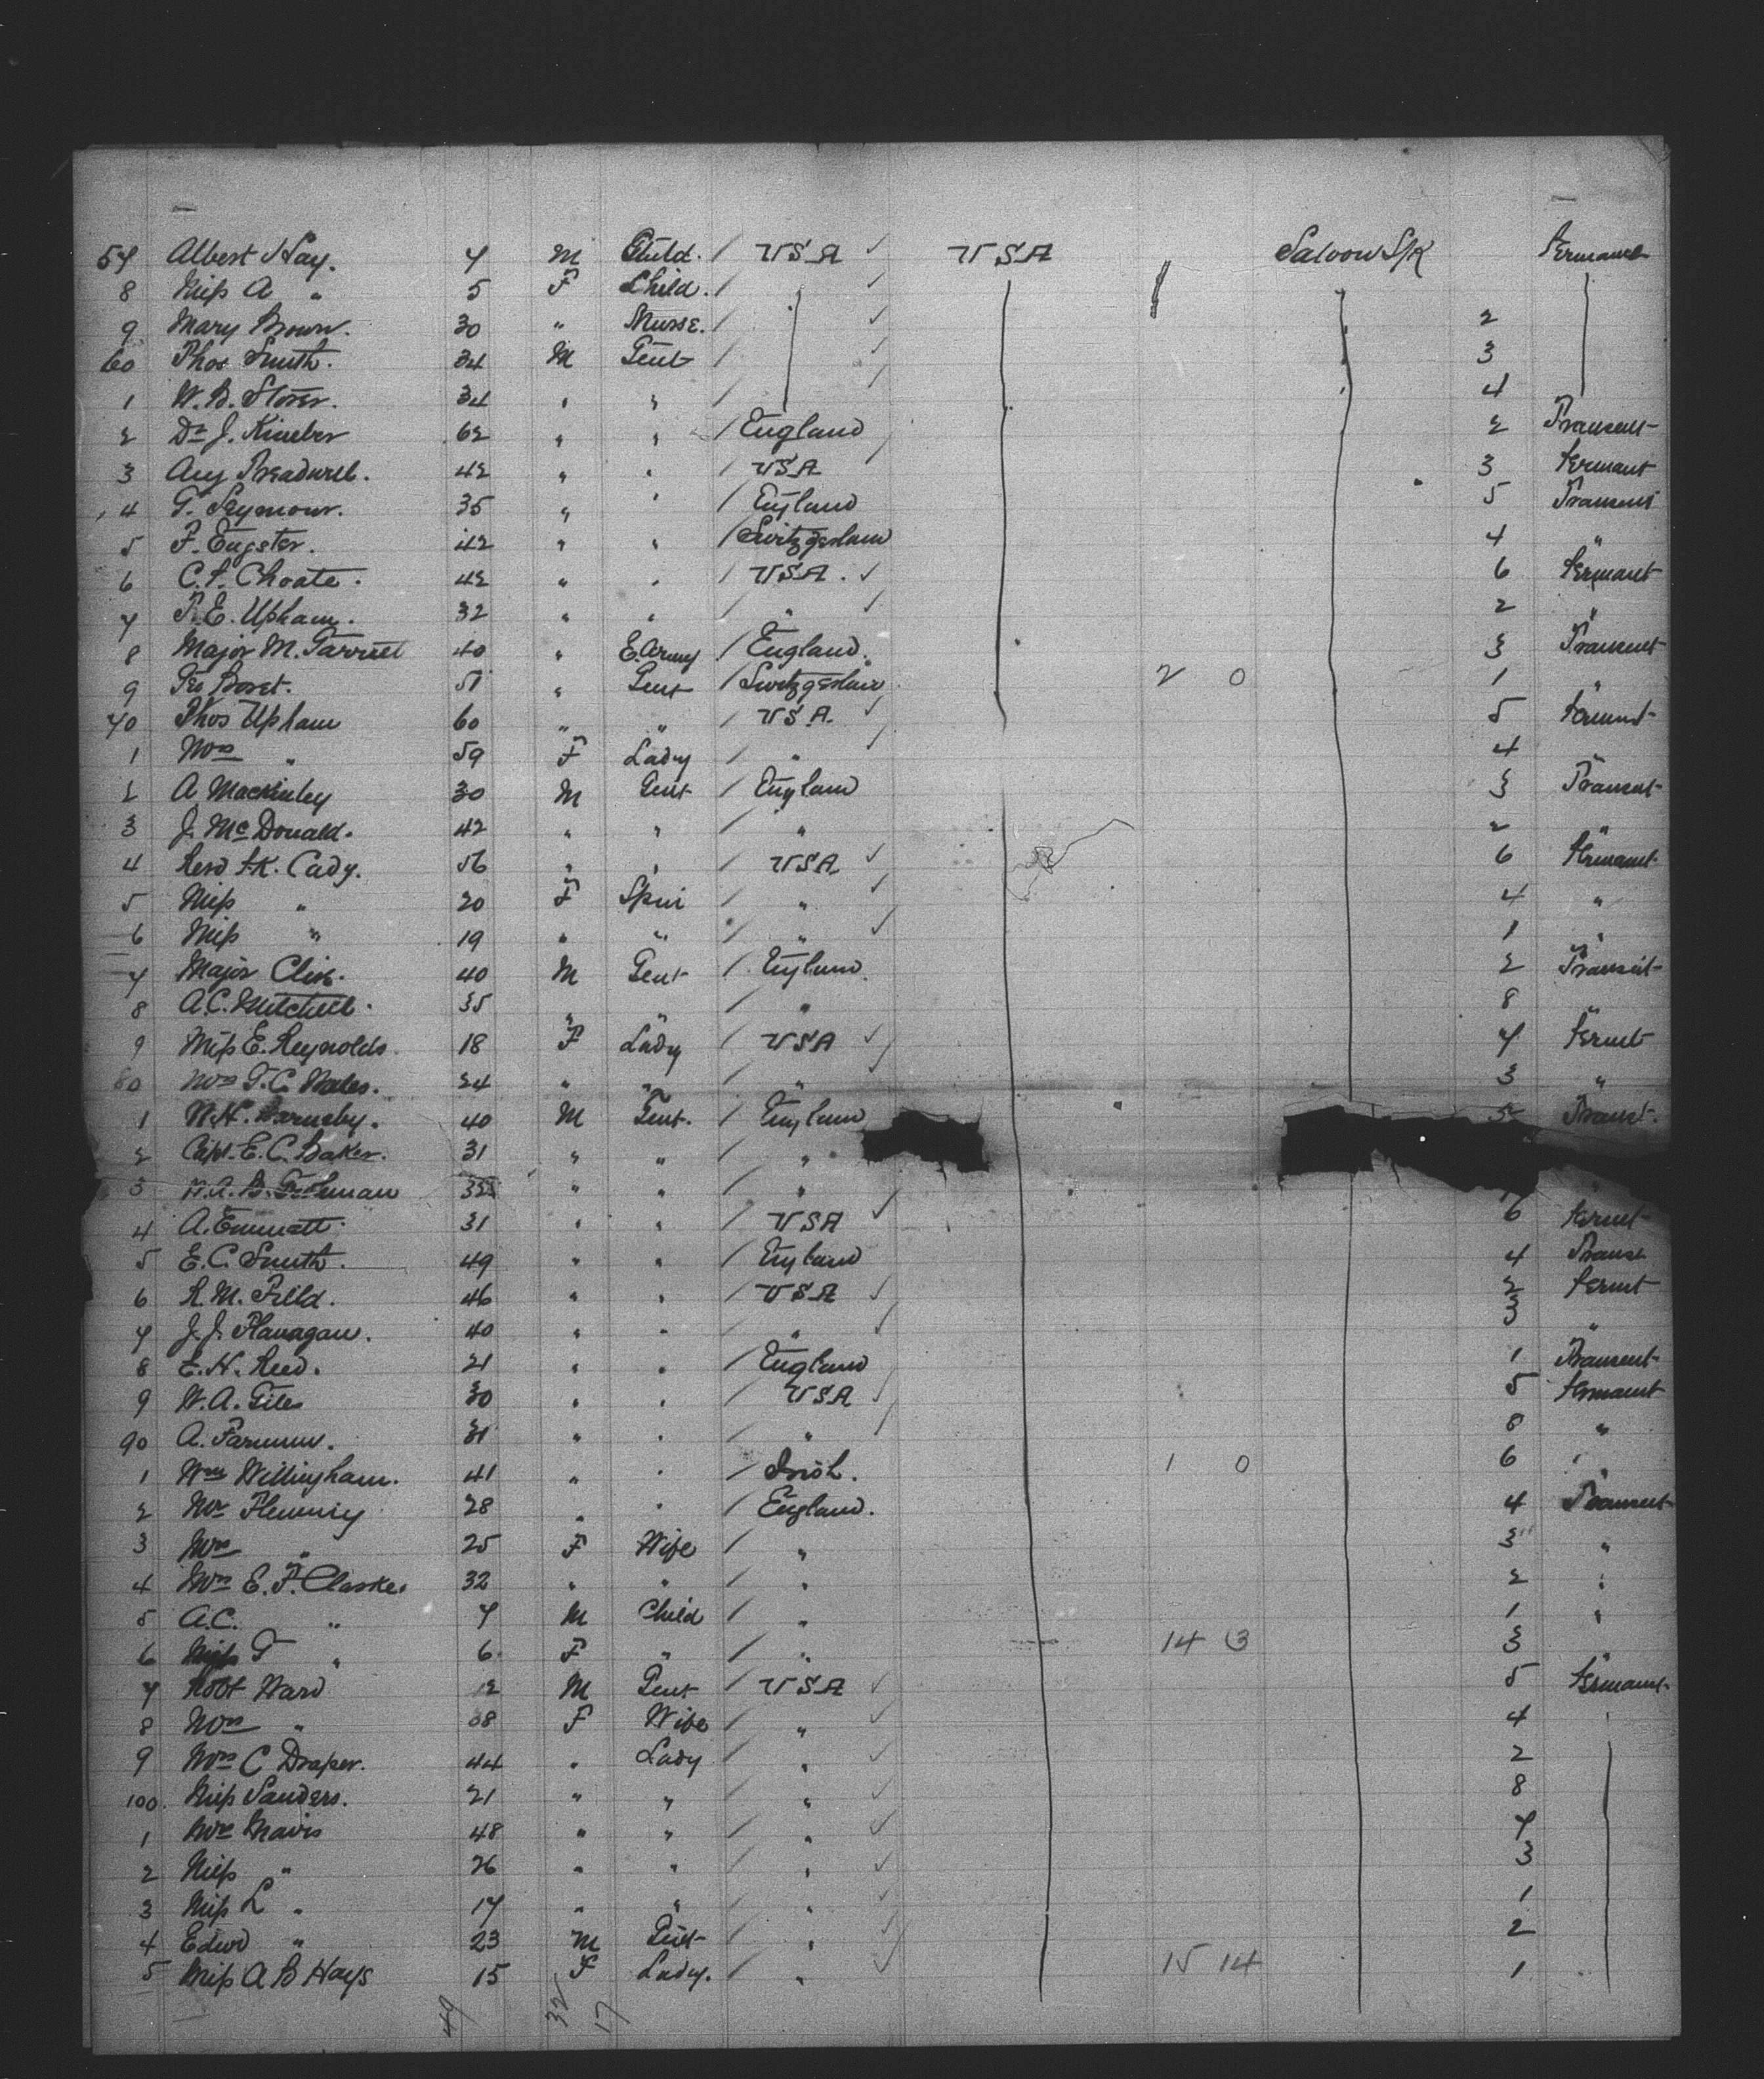 57 Albert Hay. 7 M Child. / USA ✓ USA Saloon S/K Permanent
8 Miss A " 5 F Child. / ✓
9 Mary Brown. 30 " Nurse. / ✓ 2
60 Thos Smith. 34 M Gent / ✓ 3
1 W.B. Storer. 34 " " / ✓ 4
2 Dr J. Kimber 62 " " / England 2 Transent
3 Aug Treadwell. 42 " " / USA 3 Permant
4 G. Seymour. 35 " " / England 5 Transent
5 F. Eugster. 42 " " / Switzgerland 4 "
6 C.P. Choate. 42 " " / USA. ✓ 6 Permant
7 T.E. Upham. 32 " " / " ✓ 2 "
8 Major M. 40 " E. Army / England. 3 Transent
9 Geo 51 " Gent / Switzgerland 2 0 1 "
70 Thos Upham 60 " " / USA. ✓ 5 Permnt
1 Mrs " 59 F Lady / " ✓ 4 "
2 A Mackinley 30 M Gent / England 3 Transent
3 J. McDonald. 42 " " / " 2 "
4 Revd P.K. Cady. 56 " " / USA ✓ 6 Permant
5 Miss " 20 F Spin / " ✓ 4 "
6 Miss " 19 " " / " ✓ 1 "
7 Major Clive. 40 M Gent / England. 2 Transent
8 A.C. Mitchell. 35 " " / " 8 "
9 Miss E. Reynolds. 18 F Lady / USA ✓ 7 Permt
80 Mrs T.C. Wales. 24 " " / " ✓ 3 "
1 W.H. Barnsby. 40 M Gent. / England 5 Transt.
2 Capt. E.C. Baker. 31 " " / "
3 " " / "
4 A. Emmatt. 31 " " / USA ✓ 6 Permt
5 E.C. Smith. 49 " " / England 4 Transt
6 R.M. Field. 46 " " / USA ✓ 2 Permt
7 J.J. Flanagan. 40 " " / " ✓ 3 "
8 E.H. Reed. 21 " " / England 1 Transent
9 W.A. Giles 30 " " / USA ✓ 5 Permant
90 A. Farnum. 31 " " / " ✓ 8 "
1 Wm Willingham. 41 " " / Irish. 1 0 6 "
2 Mr Fleming 28 " " / England. 4 Transent
3 Mrs " 25 F Wife / " 3 "
4 Mrs E.F. Clarke. 32 " " / " 2 "
5 A.C. " 7 M Child / " 1 "
6 Miss G " 6. F " / " 14 3 3 "
7 Robt Ward M Gent / USA ✓ 5 Permant
8 Mrs " F Wife / " ✓ 4
9 Mrs C Draper. 44 " Lady / " ✓ 2
100. Miss Sanders. 21 " " / " ✓ 8
1 Mrs 48 " " / " ✓ 7
2 Miss " 26 " " / " ✓ 3
3 Miss L " 17 " " / " ✓ 1
4 Edwd " 23 M Gent / " ✓ 2
5 Miss A B Hays 15 F Lady. / " ✓ 15 14 1
49 32 17